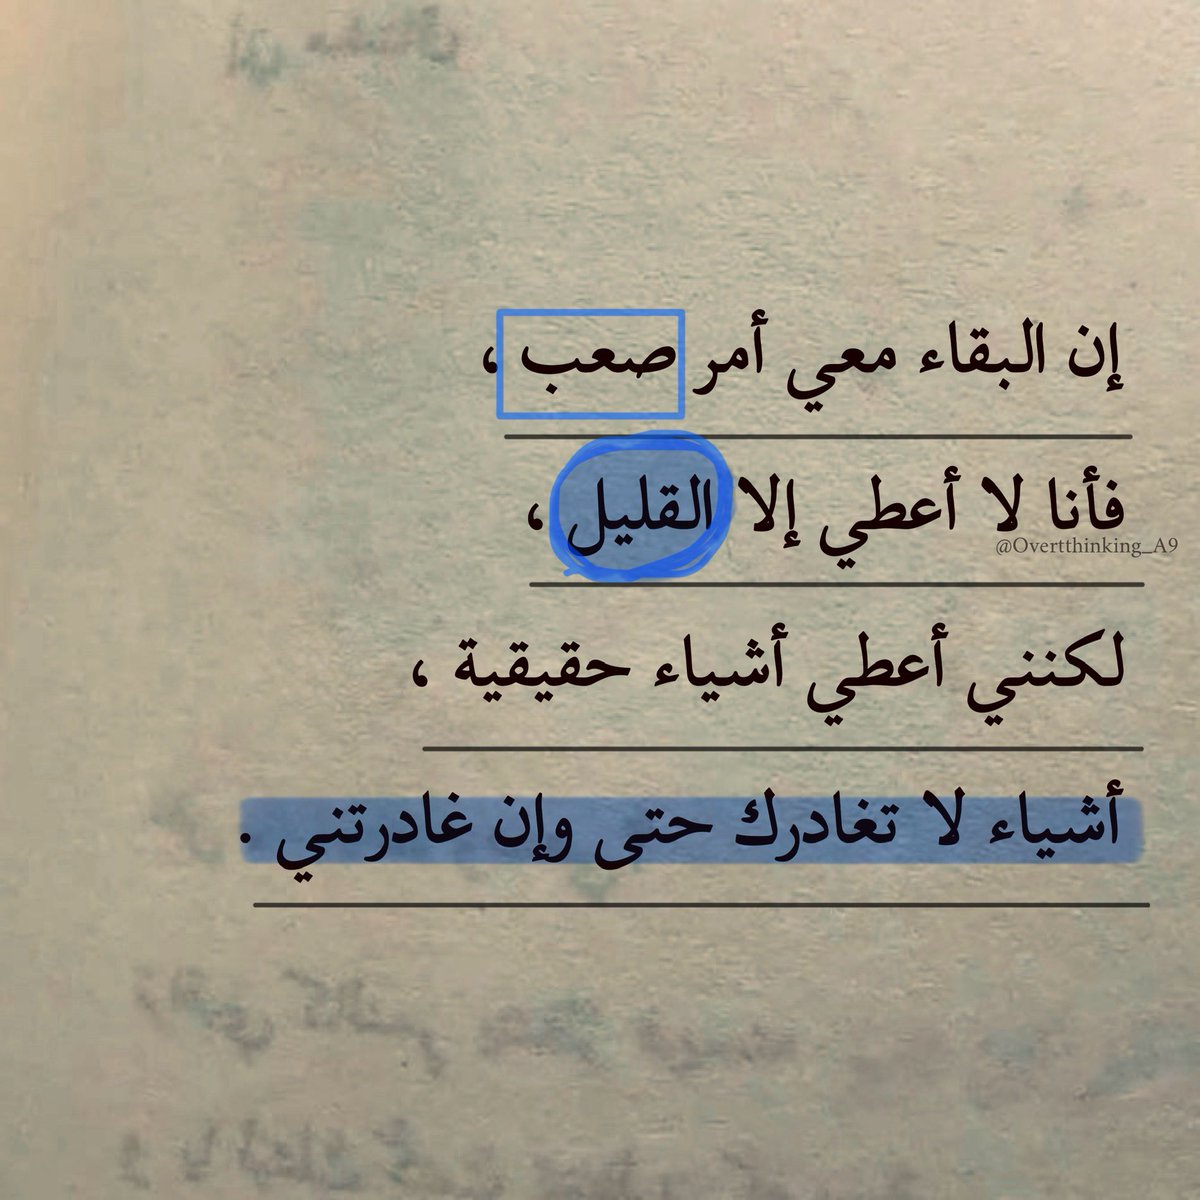 إن البقاء معي أمر صعب ،
فأنا لا أعطي إلا القليل ،
@Overtthinking_A9
لكنني أعطي أشياء حقيقية ،
أشياء لا تغادرك حتى وإن غادرتني .